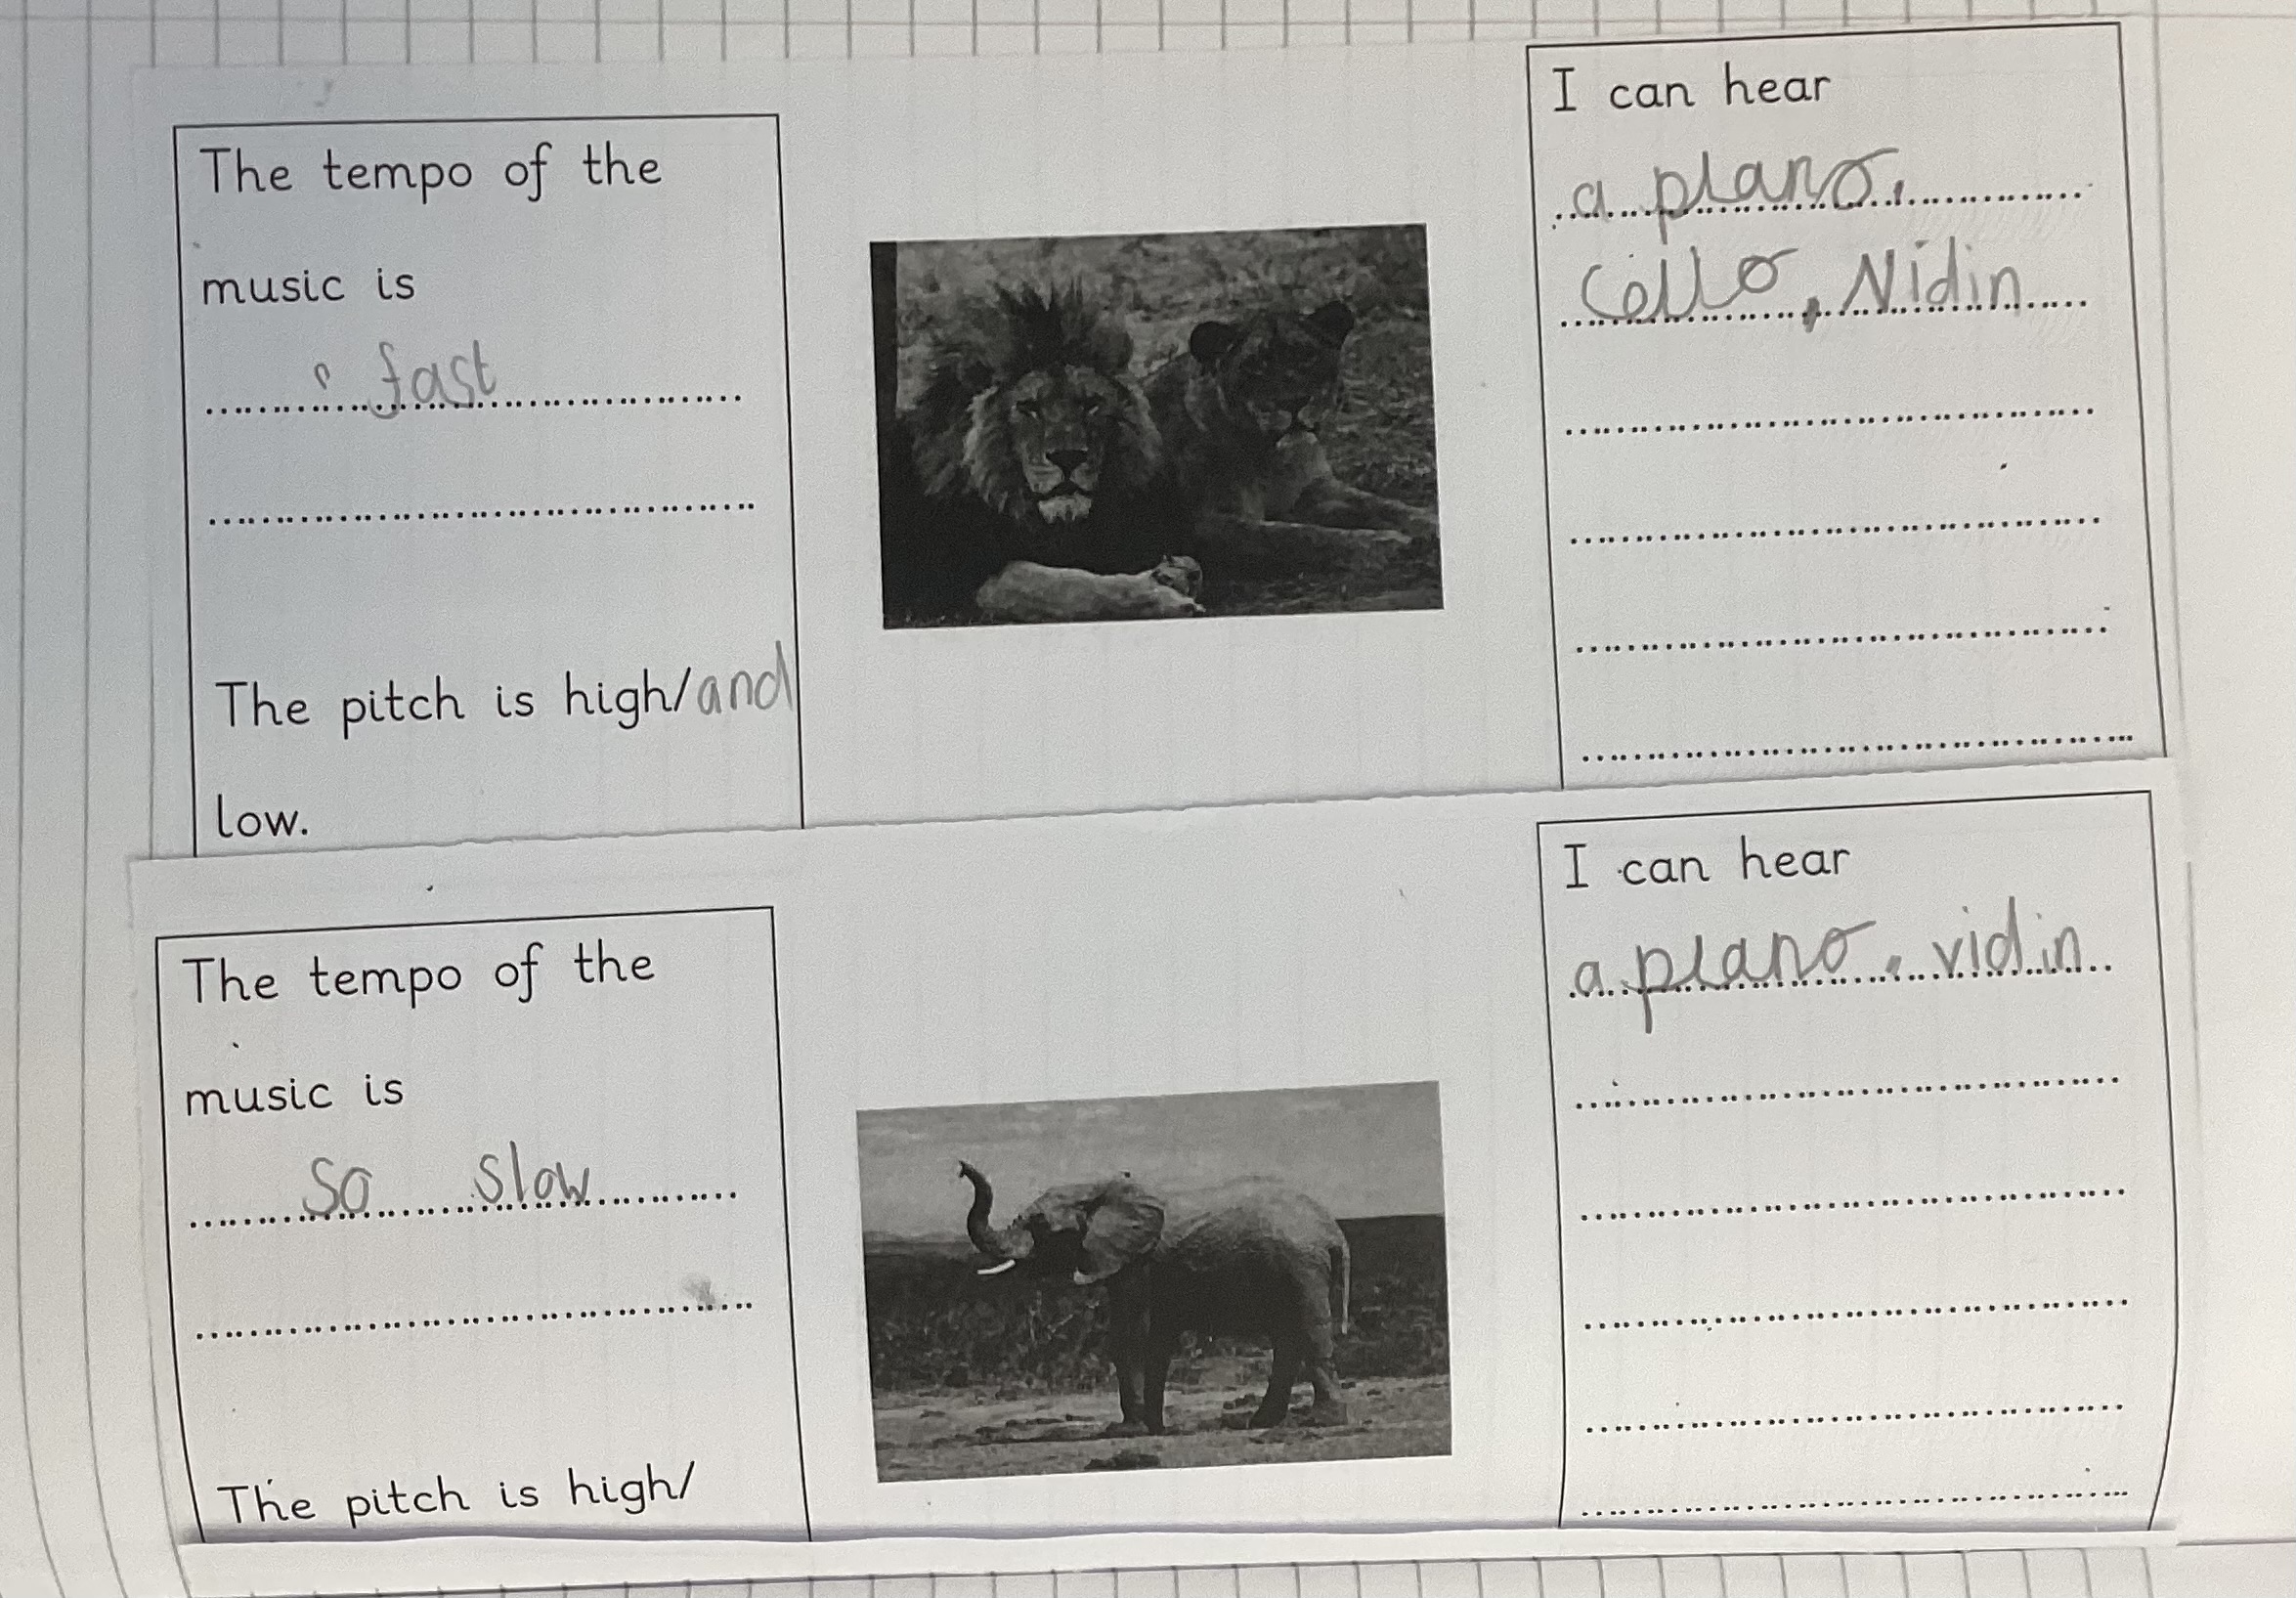 The tempo of the
music is
fast
The pitch is high/and
low.
I can hear
a piano,
Cello, Vidin
The tempo of the
music is
so slow
The pitch is high/
I can hear
a piano, vidin